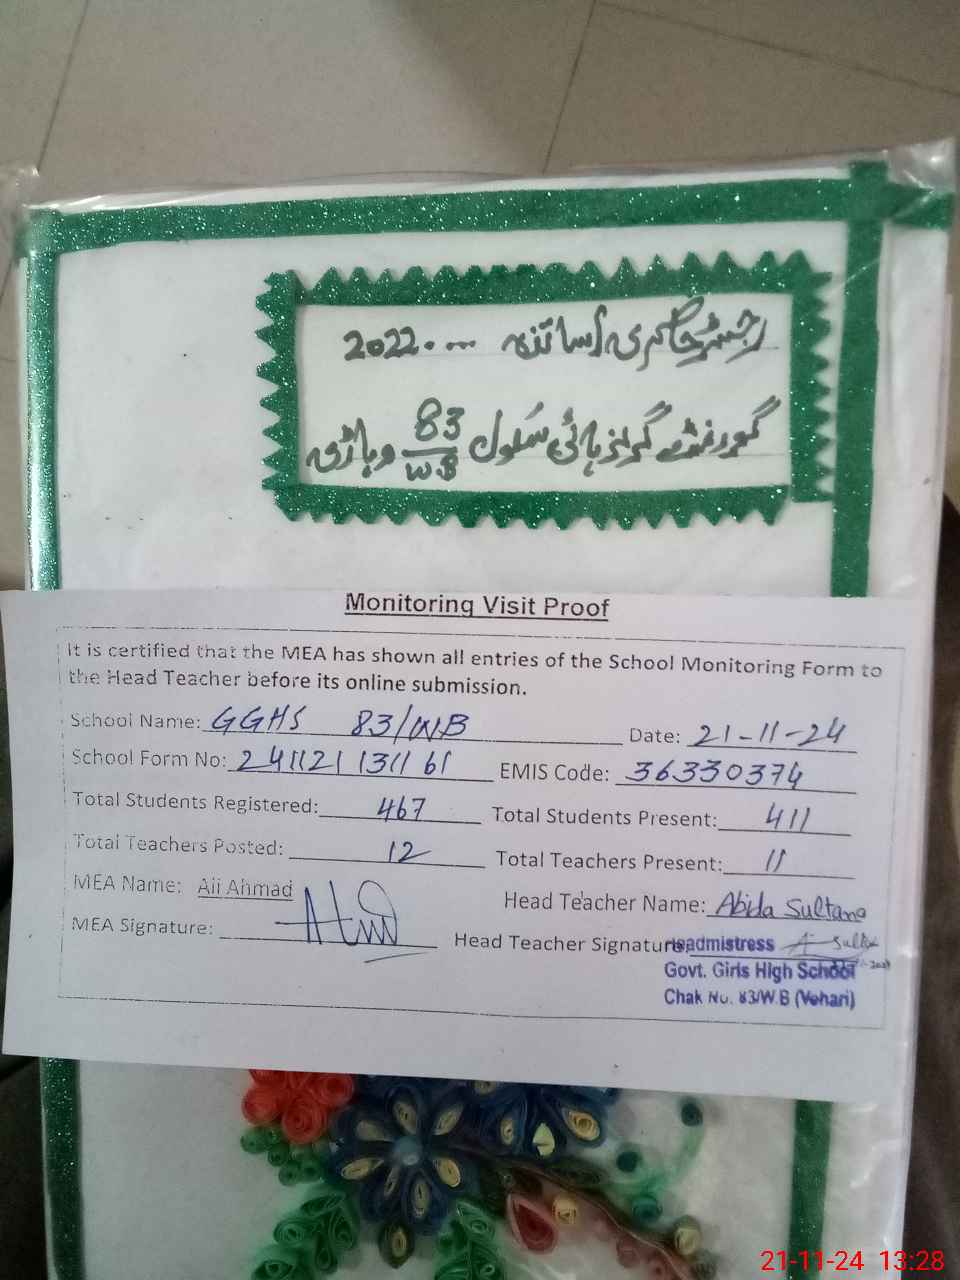 رجسٹر حاضری اساتذہ ....2022
گورنمنٹ گرلز ہائی سکول 83/W.B وہاڑی
Monitoring Visit Proof
It is certified that the MEA has shown all entries of the School Monitoring Form to
the Head Teacher before its online submission.
School Name: GGHS 83/WB Date: 21-11-24
School Form No: 241121131161 EMIS Code: 36330374
Total Students Registered: 467 Total Students Present: 411
Total Teachers Posted: 12 Total Teachers Present: 11
MEA Name: Ali Ahmad Head Teacher Name: Abida Sultana
MEA Signature: Head Teacher Signature:
Headmistress
Govt. Girls High School
Chak No. 83/W.B (Vehari)
21-11-24 13:28